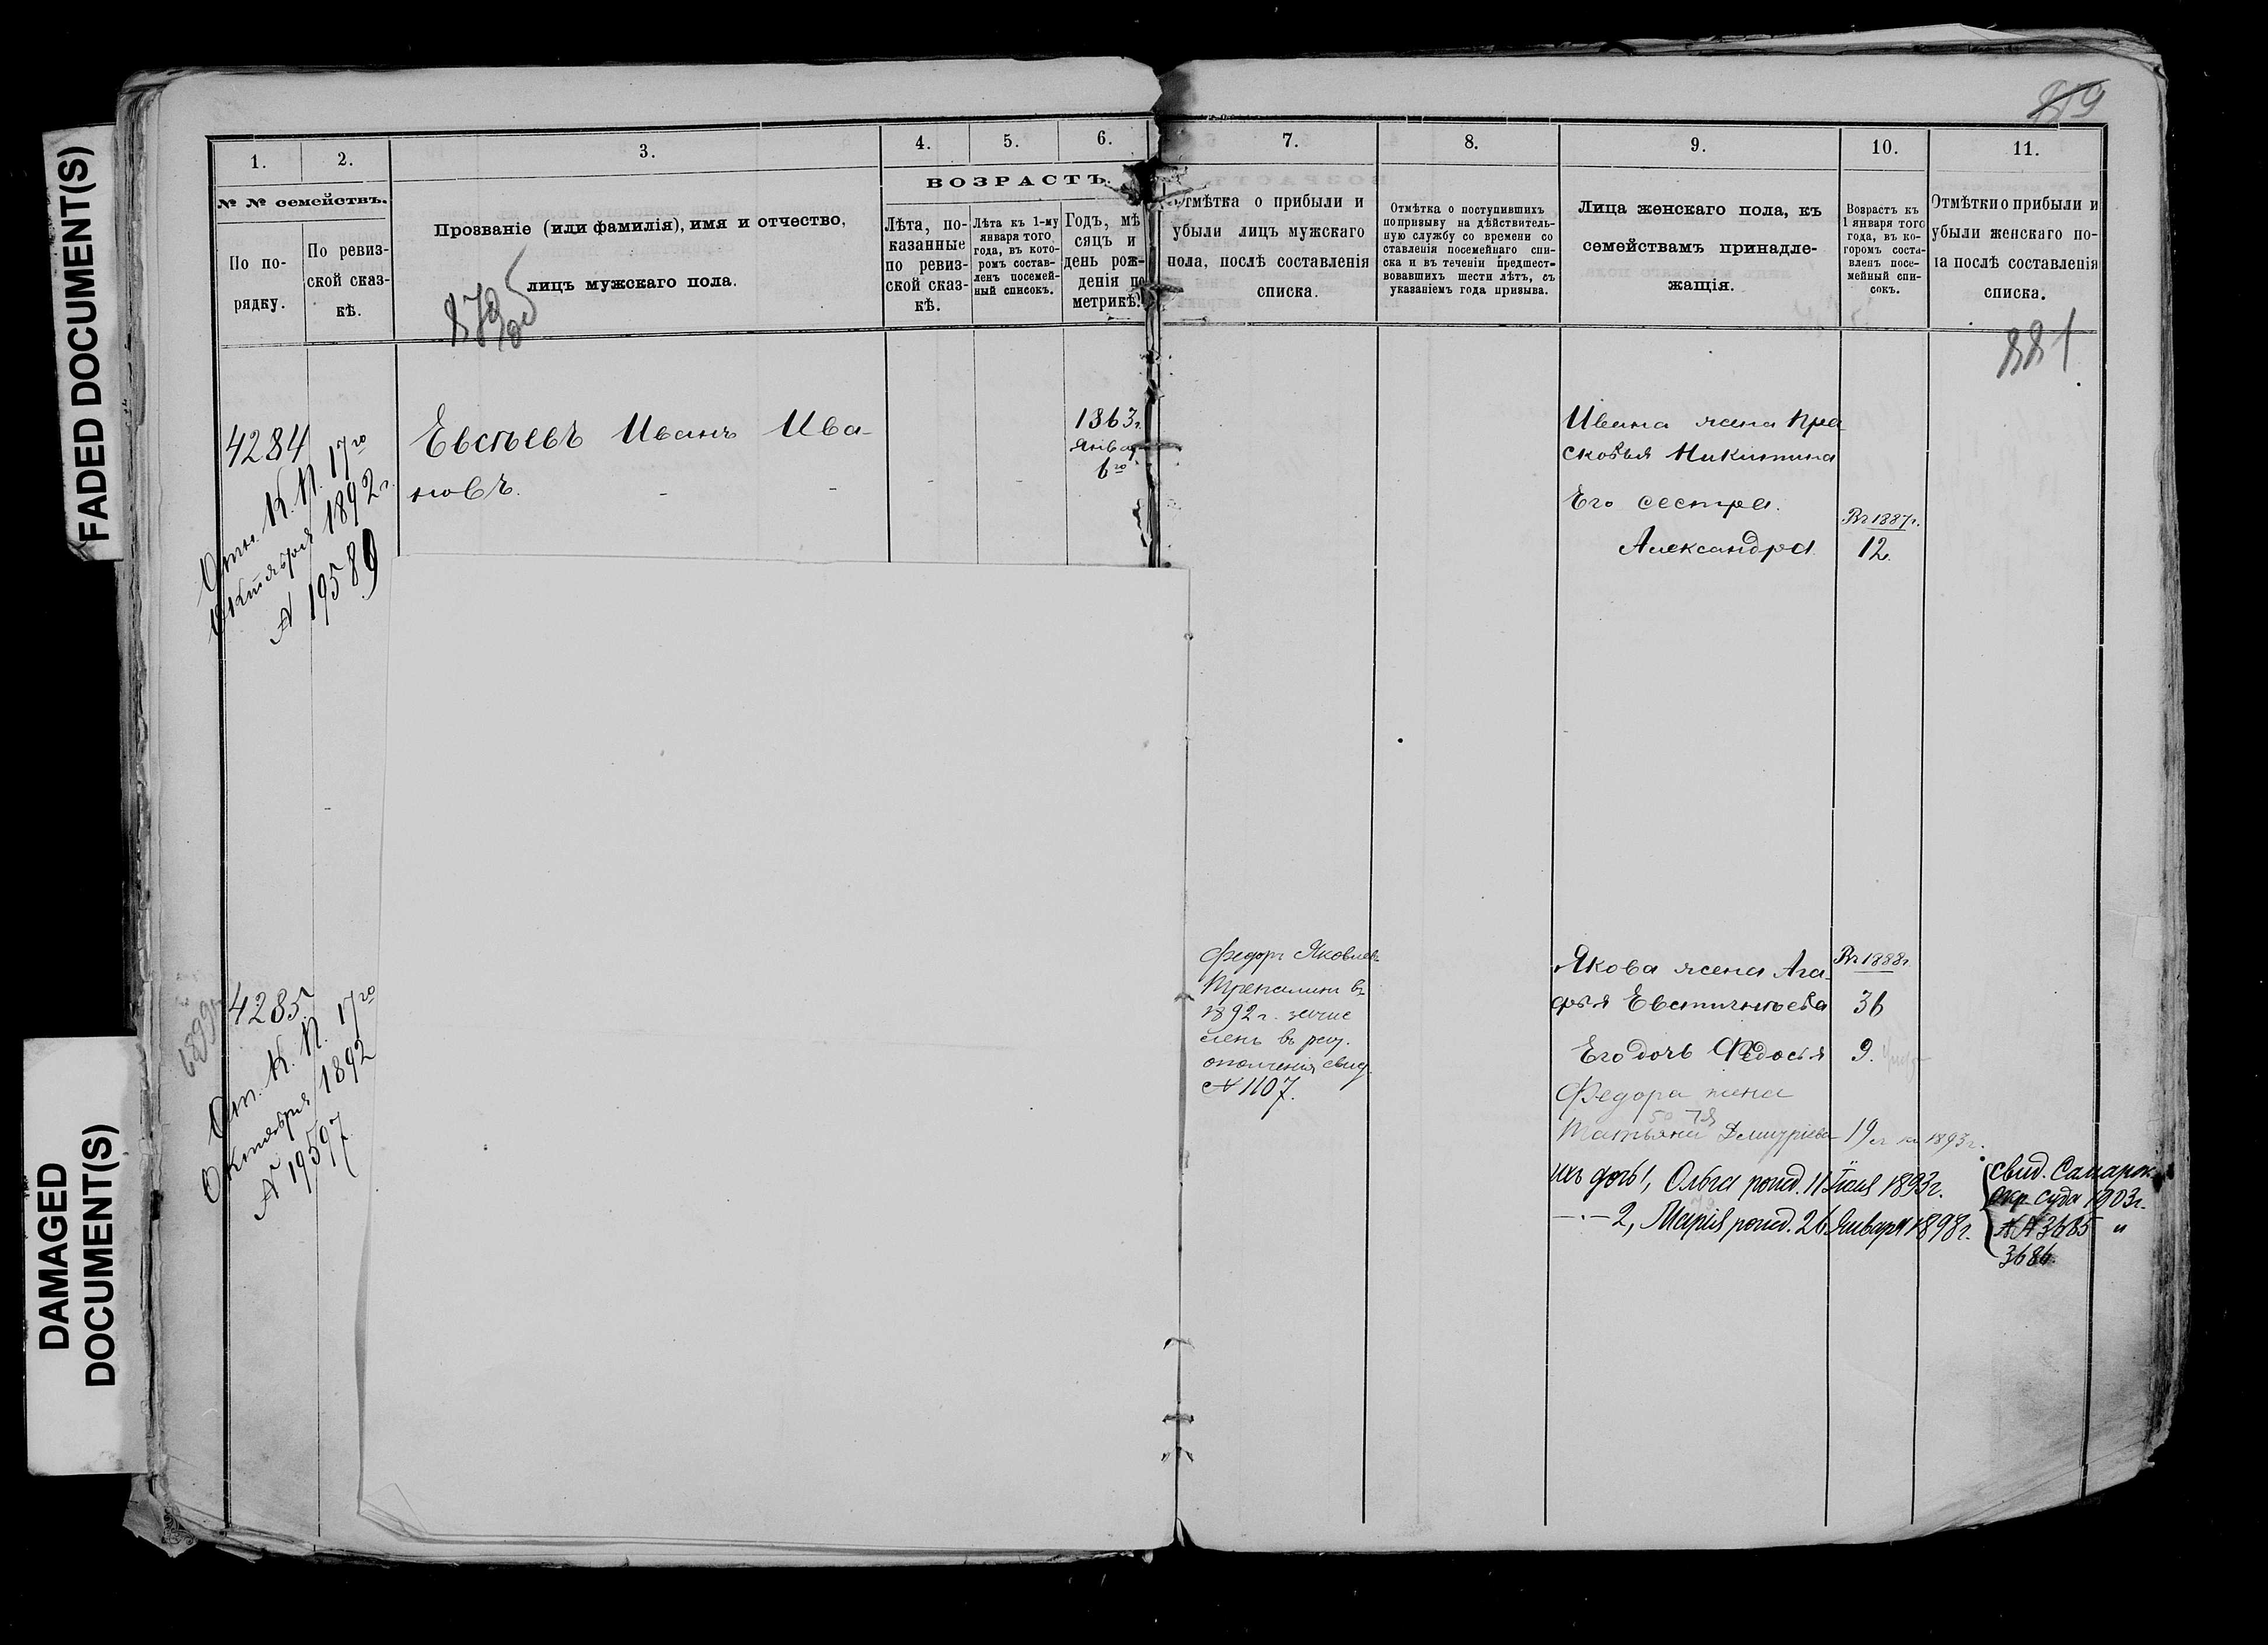 FADED DOCUMENT(S)
DAMAGED
DOCUMENT(S)
1.
2.
3.
4.
5.
6.
7.
8.
9.
10.
11.
№ № семействъ.
По по-
рядку.
По ревиз-
ской сказ-
кѣ.
Прозваніе (или фамилія), имя и отчество,
лицъ мужскаго пола.
ВОЗРАСТЪ.
Лѣта, по-
казанные
по ревиз-
ской сказ-
кѣ.
Лѣта къ 1-му
января того
года, въ кото-
ромъ состав-
ленъ посемей-
ный списокъ.
Годъ, мѣ
сяцъ и
день рож-
денія по
метрикѣ.
Отмѣтка о прибыли и
убыли лицъ мужскаго
пола, послѣ составленія
списка.
Отмѣтка о поступившихъ
по призыву на дѣйствитель-
ную службу со времени со
ставленія посемейнаго спи-
ска и въ теченіи предшест-
вовавшихъ шести лѣтъ, съ
указаніемъ года призыва.
Лица женскаго пола, къ
семействамъ принадле-
жащія.
Возрастъ къ
1 января того
года, въ ко-
торомъ соста-
вленъ посе-
мейный спи-
сокъ.
Отмѣтки о прибыли и
убыли женскаго по-
ла послѣ составленія
списка.
881
4284
К. П. 17го
Октября 1892 г.
№ 19589
Евсѣевъ Иванъ Ива-
новъ.
1863 г.
Январ
6го
Ивана жена Пра-
сковья Никитина
Его сестра.
Александра
Въ 1887 г.
12.
4285
От. К. П. 17го
Октября 1892
№ 19597
Федоръ Яковлев
въ
1892 г. зачис
ленъ въ рат.
ополченія свид.
№ 1107.
Якова жена Ага-
фья Евстигнѣева
Въ 1888 г.
36
Его дочь Федосья
9.
Федора жена
Татьяна Дмитріева 19 л. къ 1893 г.
ихъ дочь 1, Ольга рожд. 11 Іюля 1893 г.
—·— 2, Марія рожд. 26 Января 1898 г.
свид. Самарск.
окр. суда 1903 г.
№№ 3685 и
3686.